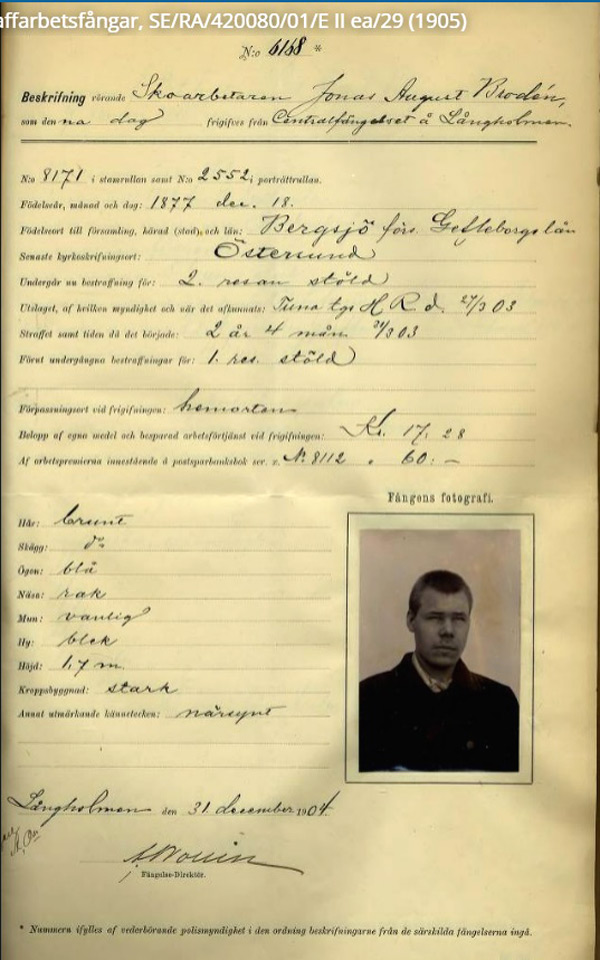 affarbetsfångar, SE/RA/420080/01/E II ea/29 (1905)
N:o 6168 *
Beskrifning rörande Skoarbetaren Jonas August Brodén,
som denna dag frigifves från Centralfängelset å Långholmen.
N:o 8171 i stamrullan samt N:o 2552 i porträttrullan.
Födelseår, månad och dag: 1877 dec. 18.
Födelseort till församling, härad (stad) och län: Bergsjö förs. Gefleborgs län
Senaste kyrkoskrifningsort: Östersund
Undergår nu bestraffning för: 2. resan stöld
Utslaget, af hvilken myndighet och när det afkunnats: Tuna tgs H R d. 27/3 03
Straffet samt tiden då det började: 2 år 4 mån. /3 03
Förut undergångna bestraffningar för: 1. res. stöld
Förpassningsort vid frigifningen: hemorten
Belopp af egna medel och besparad arbetsförtjänst vid frigifningen: Kr. 17. 28
Af arbetspremierna innestående å postsparbanksbok ser. x. N. 8112 " 60: –
Fångens fotografi.
Hår: brunt
Skägg: do
Ögon: blå
Näsa: rak
Mun: vanlig
Hy: blek
Höjd: 1,7 m.
Kroppsbyggnad: stark
Annat utmärkande kännetecken: närsynt
Långholmen den 31 december 1904
Fängelse-Direktör.
* Nummern ifylles af vederbörande polismyndighet i den ordning beskrifningarne från de särskilda fängelserna ingå.